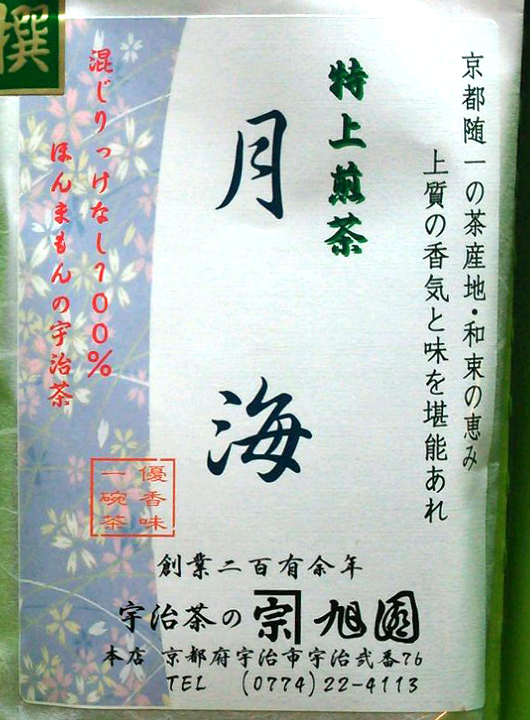 京都随一の茶産地・和束の恵み
上質の香気と味を堪能あれ
特上煎茶
月海
混じりっけなし100%
ほんまもんの宇治茶
撰
優香味
一碗茶
創業二百有余年
宇治茶の宗旭園
本店 京都府宇治市宇治弐番76
TEL (0774)22-4113